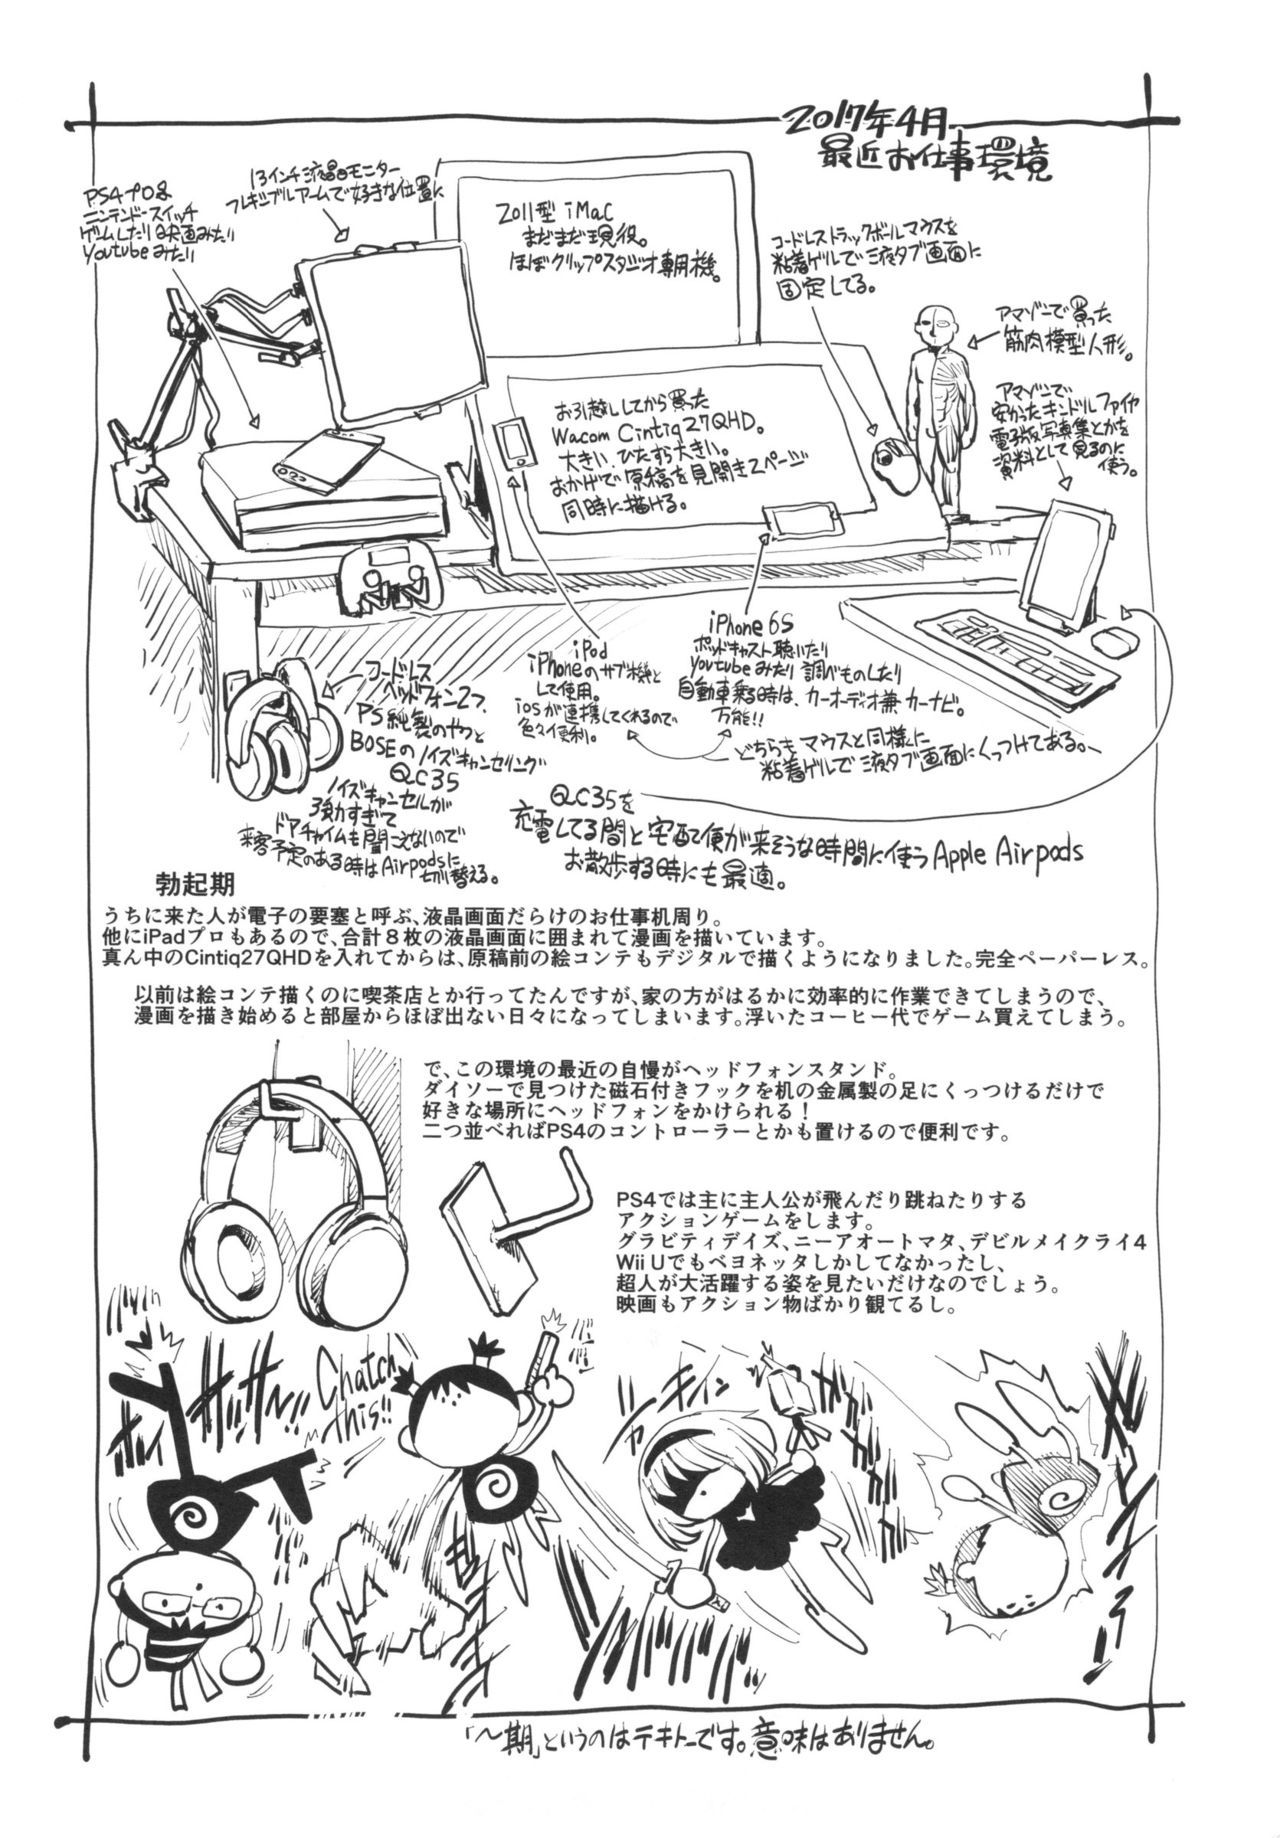 2017年4月
最近お仕事環境
PS4プロ&
ニンテンドースイッチ
ゲームしたり映画みたり
Youtubeみたり
13インチ液晶モニター
フレキシブルアームで好きな位置に
2011型 iMac
まだまだ現役。
ほぼクリップスタジオ専用機。
コードレストラックボールマウスを
粘着ゲルで液タブ画面に
固定してる。
アマゾンで買った
筋肉模型人形。
アマゾンで
安かったキンドルファイヤ
電子版写真集とかを
資料として見るのに
使う。
お引越ししてから買った
Wacom Cintiq27QHD。
大きい、ひたすら大きい。
おかげで原稿を見開き2ページ
同時に描ける。
iPod
iPhoneのサブ機と
して使用。
iosが連携してくれるので
色々便利。
iPhone 6S
ポッドキャスト聴いたり
Youtubeみたり調べものしたり
自動車乗る時は、カーオーディオ兼カーナビ。
万能!!
どちらもマウスと同様に
粘着ゲルで液タブ画面にくっつけてある。
コードレス
ヘッドフォン2つ、
PS純製のやつと
BOSEのノイズキャンセリング
QC35
ノイズキャンセルが
強力すぎて
ドアチャイムも聞こえないので
来客予定のある時はAirpodsに
切り替える。
QC35を
充電してる間と宅配便が来そうな時間に使うApple Airpods
お散歩する時にも最適。
勃起期
うちに来た人が電子の要塞と呼ぶ、液晶画面だらけのお仕事机周り。
他にiPadプロもあるので、合計8枚の液晶画面に囲まれて漫画を描いています。
真ん中のCintiq27QHDを入れてからは、原稿前の絵コンテもデジタルで描くようになりました。完全ペーパーレス。
以前は絵コンテ描くのに喫茶店とか行ってたんですが、家の方がはるかに効率的に作業できてしまうので、
漫画を描き始めると部屋からほぼ出ない日々になってしまいます。浮いたコーヒー代でゲーム買えてしまう。
で、この環境の最近の自慢がヘッドフォンスタンド。
ダイソーで見つけた磁石付きフックを机の金属製の足にくっつけるだけで
好きな場所にヘッドフォンをかけられる！
二つ並べればPS4のコントローラーとかも置けるので便利です。
PS4では主に主人公が飛んだり跳ねたりする
アクションゲームをします。
グラビティデイズ、ニーアオートマタ、デビルメイクライ4
Wii Uでもベヨネッタしかしてなかったし、
超人が大活躍する姿を見たいだけなのでしょう。
映画もアクション物ばかり観てるし。
Chatch
this!!
ガキィン
「〜期」というのはテキトーです。意味はありません。